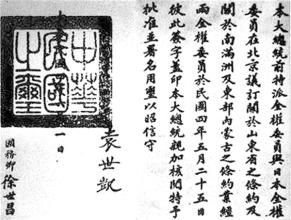 本大總統前特派全權委員與日本全權
委員在北京議訂關於山東省之條約及
關於南滿洲及東部內蒙古之條約業經
兩全權委員於民國四年五月二十五日
彼此簽字蓋印本大總統親加核閱特予
批准並署名用璽以昭信守
袁世凱
中華民國之璽
一日
國務卿 徐世昌